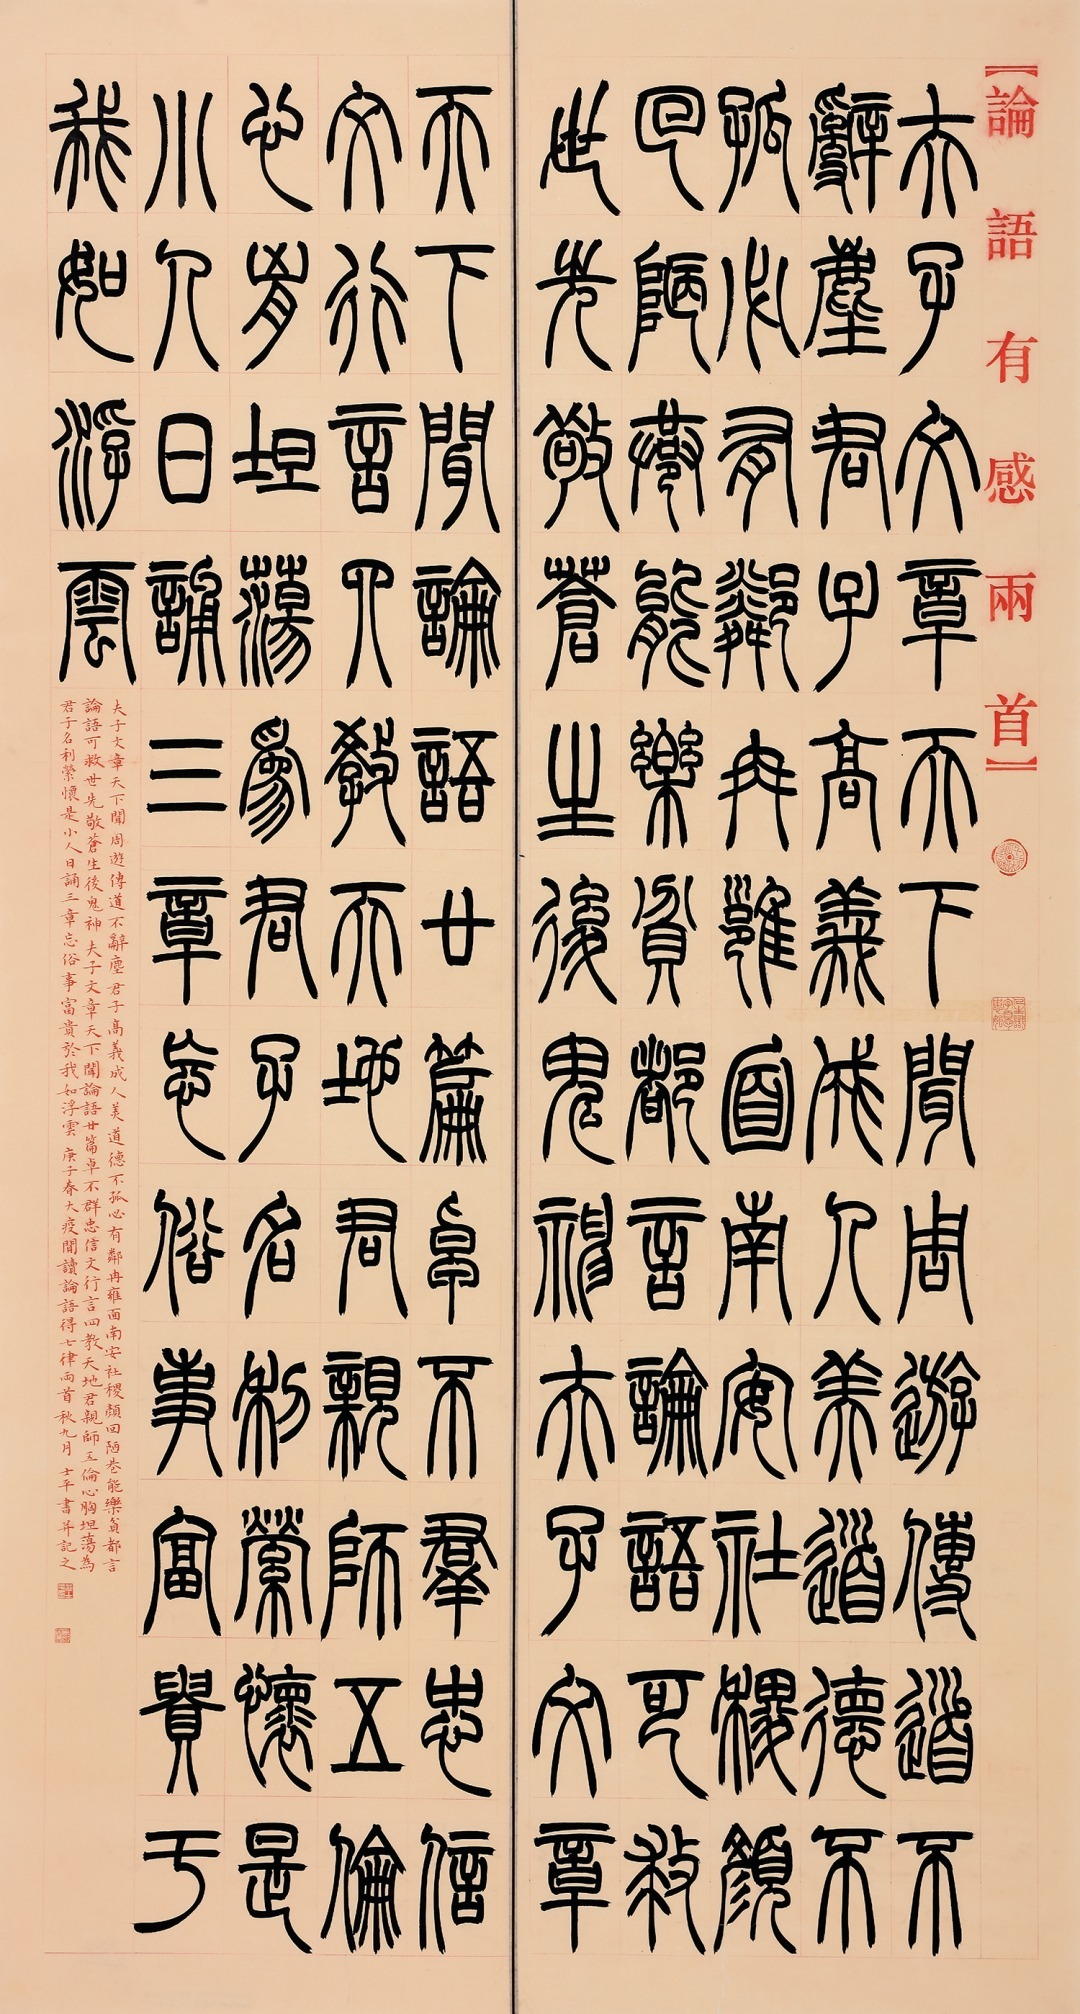 【論語有感兩首】
夫子文章天下聞周遊傳道不
辭塵君子高義成人美道德不
孤必有鄰冉雍面南安社稷顏
回陋巷能樂貧都言論語可救
世先敬蒼生後鬼神夫子文章
天下聞論語廿篇卓不群忠信
文行言四教天地君親師五倫
心胸坦蕩為君子名利縈懷是
小人日誦三章忘俗事富貴于
我如浮雲
夫子文章天下聞周遊傳道不辭塵君子高義成人美道德不孤必有鄰冉雍面南安社稷顏回陋巷能樂貧都言
論語可救世先敬蒼生後鬼神夫子文章天下聞論語廿篇卓不群忠信文行言四教天地君親師五倫心胸坦蕩為
君子名利縈懷是小人日誦三章忘俗事富貴於我如浮雲庚子春大疫間讀論語得七律兩首秋九月士平書并記之